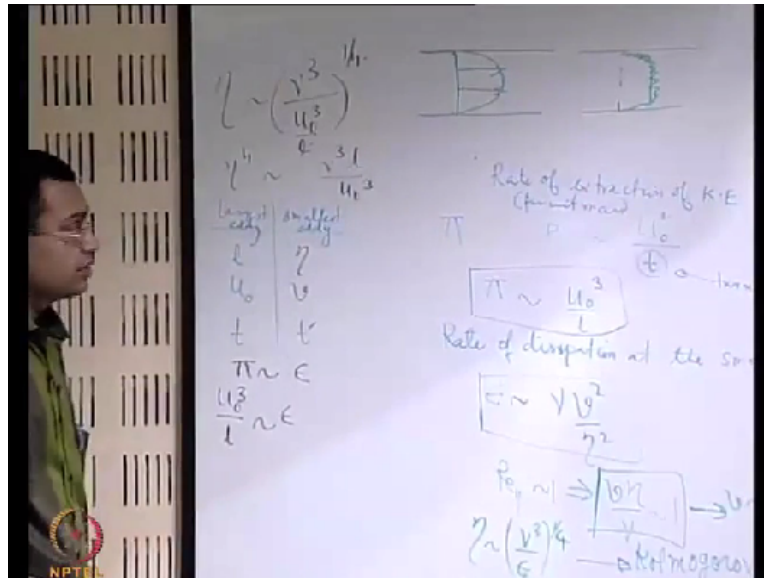 η ~ (ν³ / (u₀³ / l))^1/4
η⁴ ~ ν³ l / u₀³
largest eddy | smallest eddy
l | η
u₀ | υ
t | t
π ~ ε
u₀³ / l ~ ε
Rate of extraction of K.E
π P ~ u₀² / t
π ~ u₀³ / l
Rate of dissipation at the
ε ~ ν υ² / η²
Re ~ 1 ⇒ υη / ν ~ 1 →
η ~ (ν³ / ε)^1/4 → Kolmogorov
NPTEL